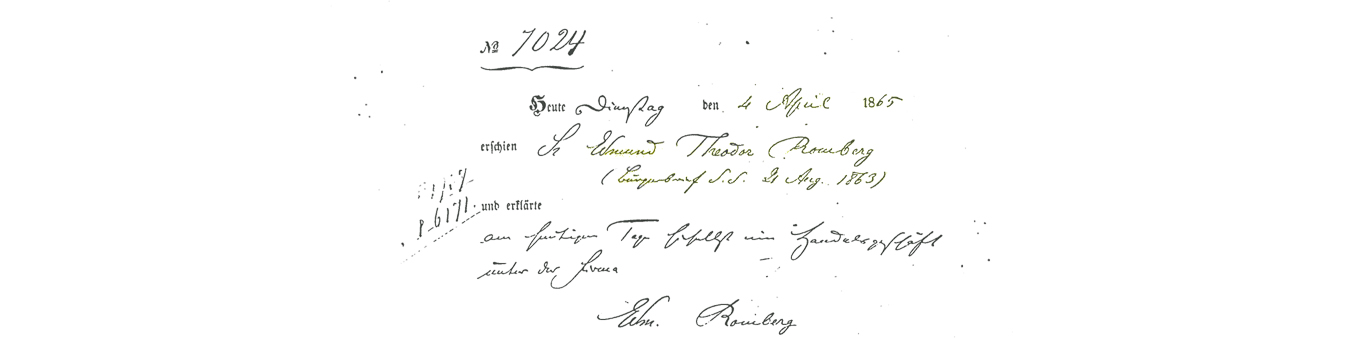 № 7024
Heute Dienstag den 4 April 1865
erschien Hr Edmund Theodor Romberg
(Bürgerbrief d.d. 21 Aug. 1863)
P 6171.
und erklärte
am heutigen Tage hieselbst ein Handelsgeschäft
unter der Firma
Edm. Romberg